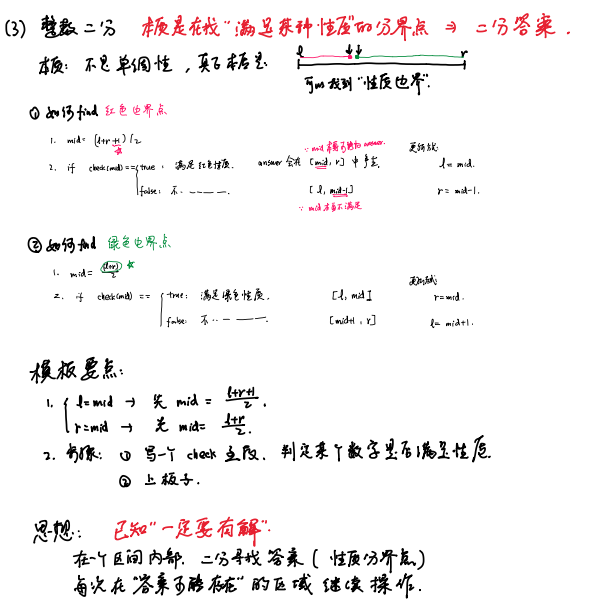 (3) 整数二分 本质是在找"满足某种性质"的分界点 ⇒ 二分答案.
本质: 不是单调性, 真正本质是: l r
可以找到"性质边界".
① 如何find 红色边界点
1. mid = (l+r+1)/2
∵ mid本身可能为answer. 更新成:
2. if check(mid)== true: 满足红性质. answer 会在 [mid, r] 中产生 l = mid.
false: 不. [l, mid-1] r = mid-1.
∵ mid本身不满足
② 如何find 绿色边界点
1. mid = (l+r)/2 更新成
2. if check(mid) == true: 满足绿色性质, [l, mid] r=mid.
false: 不.. [mid+1, r] l= mid+1.
模板要点:
1. l=mid → 先 mid = (l+r+1)/2.
r=mid → 先 mid= (l+r)/2.
2. 步骤: ① 写一个 check 函数, 判定某个数字是否满足性质
② 上板子.
思想: 已知"一定要有解".
在一个区间内部. 二分寻找答案 (性质分界点)
每次在"答案可能存在"的区域 继续操作.